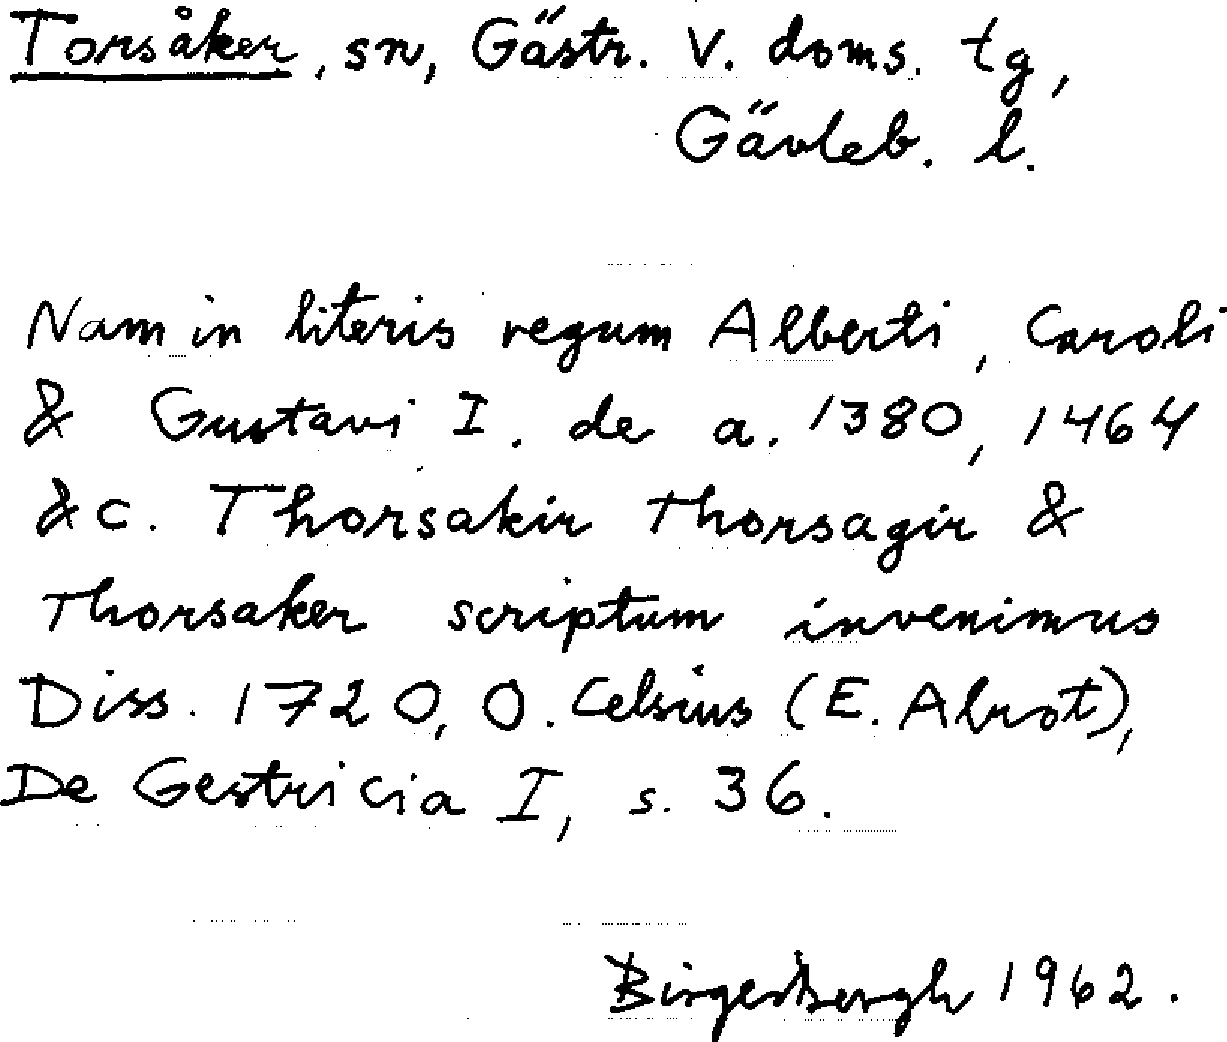 Torsåker, sn, Gästr. V. doms. tg,
Gävleb. l.
Nam in literis regum Alberti, Caroli
& Gustavi I. de a. 1380, 1464
&c. Thorsakir Thorsagir &
Thorsaker scriptum invenimus
Diss. 1720, O. Celsius (E. Alrot),
De Gestricia I, s. 36.
Birger Bergh 1962.